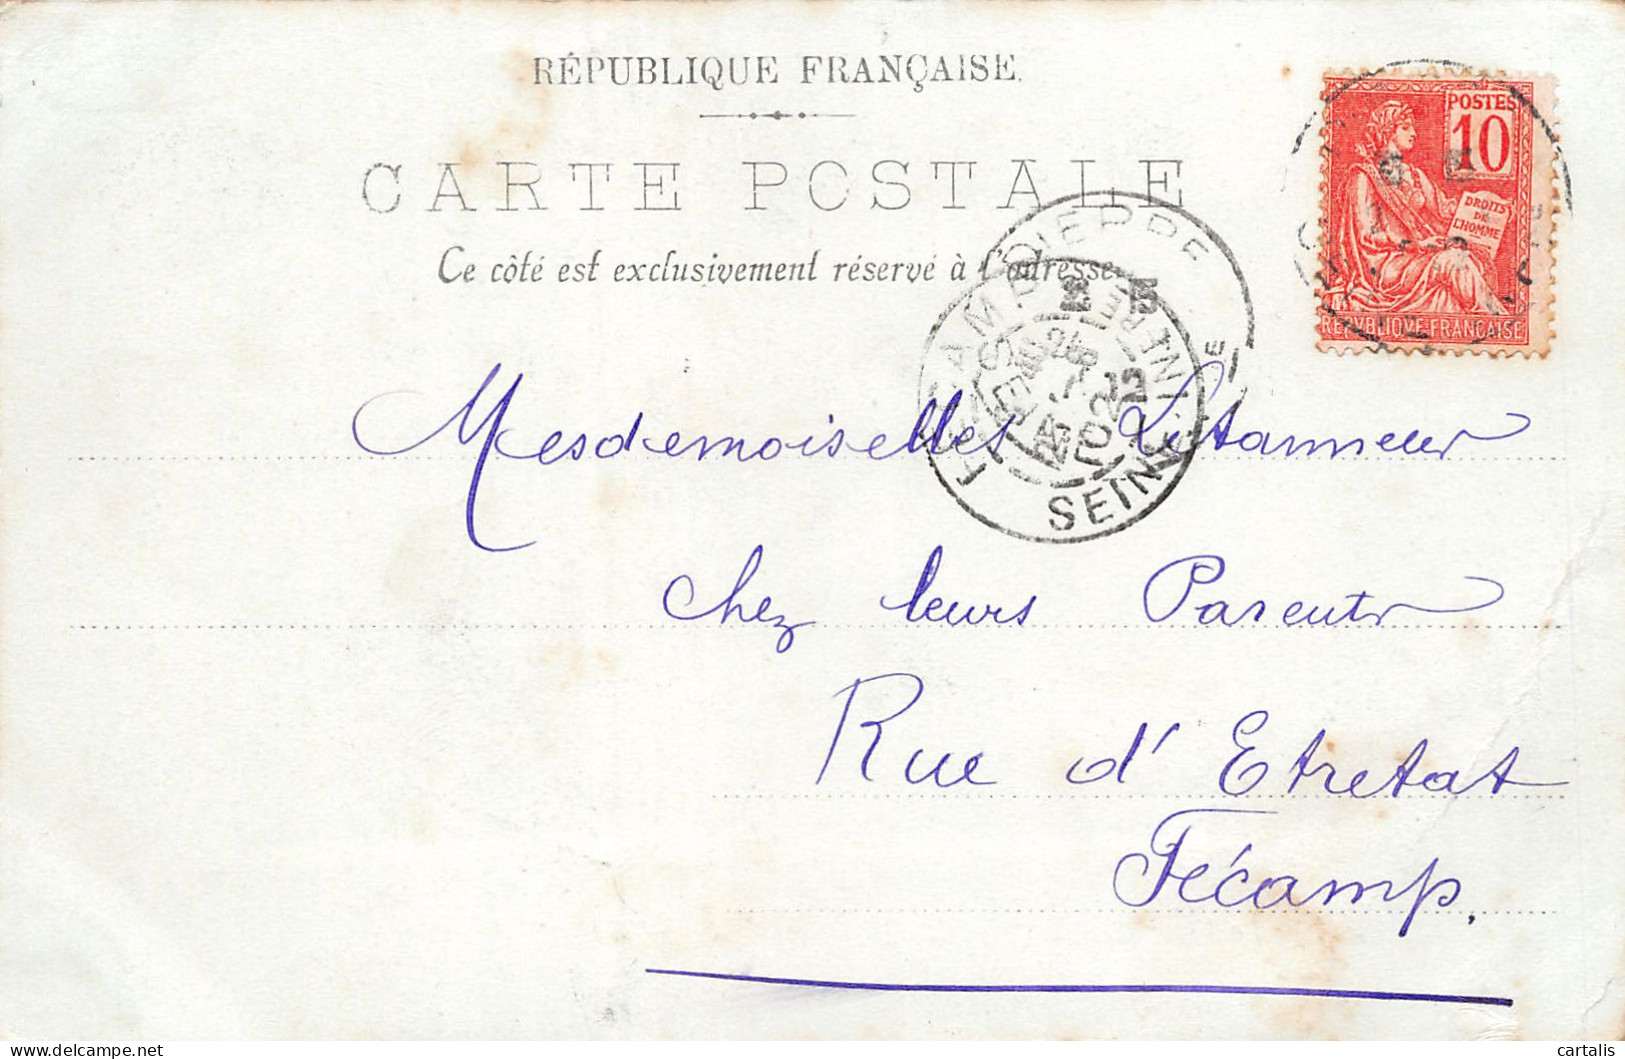 RÉPUBLIQUE FRANÇAISE.
CARTE POSTALE
Ce côté est exclusivement réservé à l'adresse
POSTES
10
DROITS
DE
L'HOMME
REPVBLIQVE FRANÇAISE
DIEPPE
FECAMP
SEINE INFERE
02
Mesdemoiselles
chez leurs Parents
Rue d'Etretat
Fécamp.
cartalis